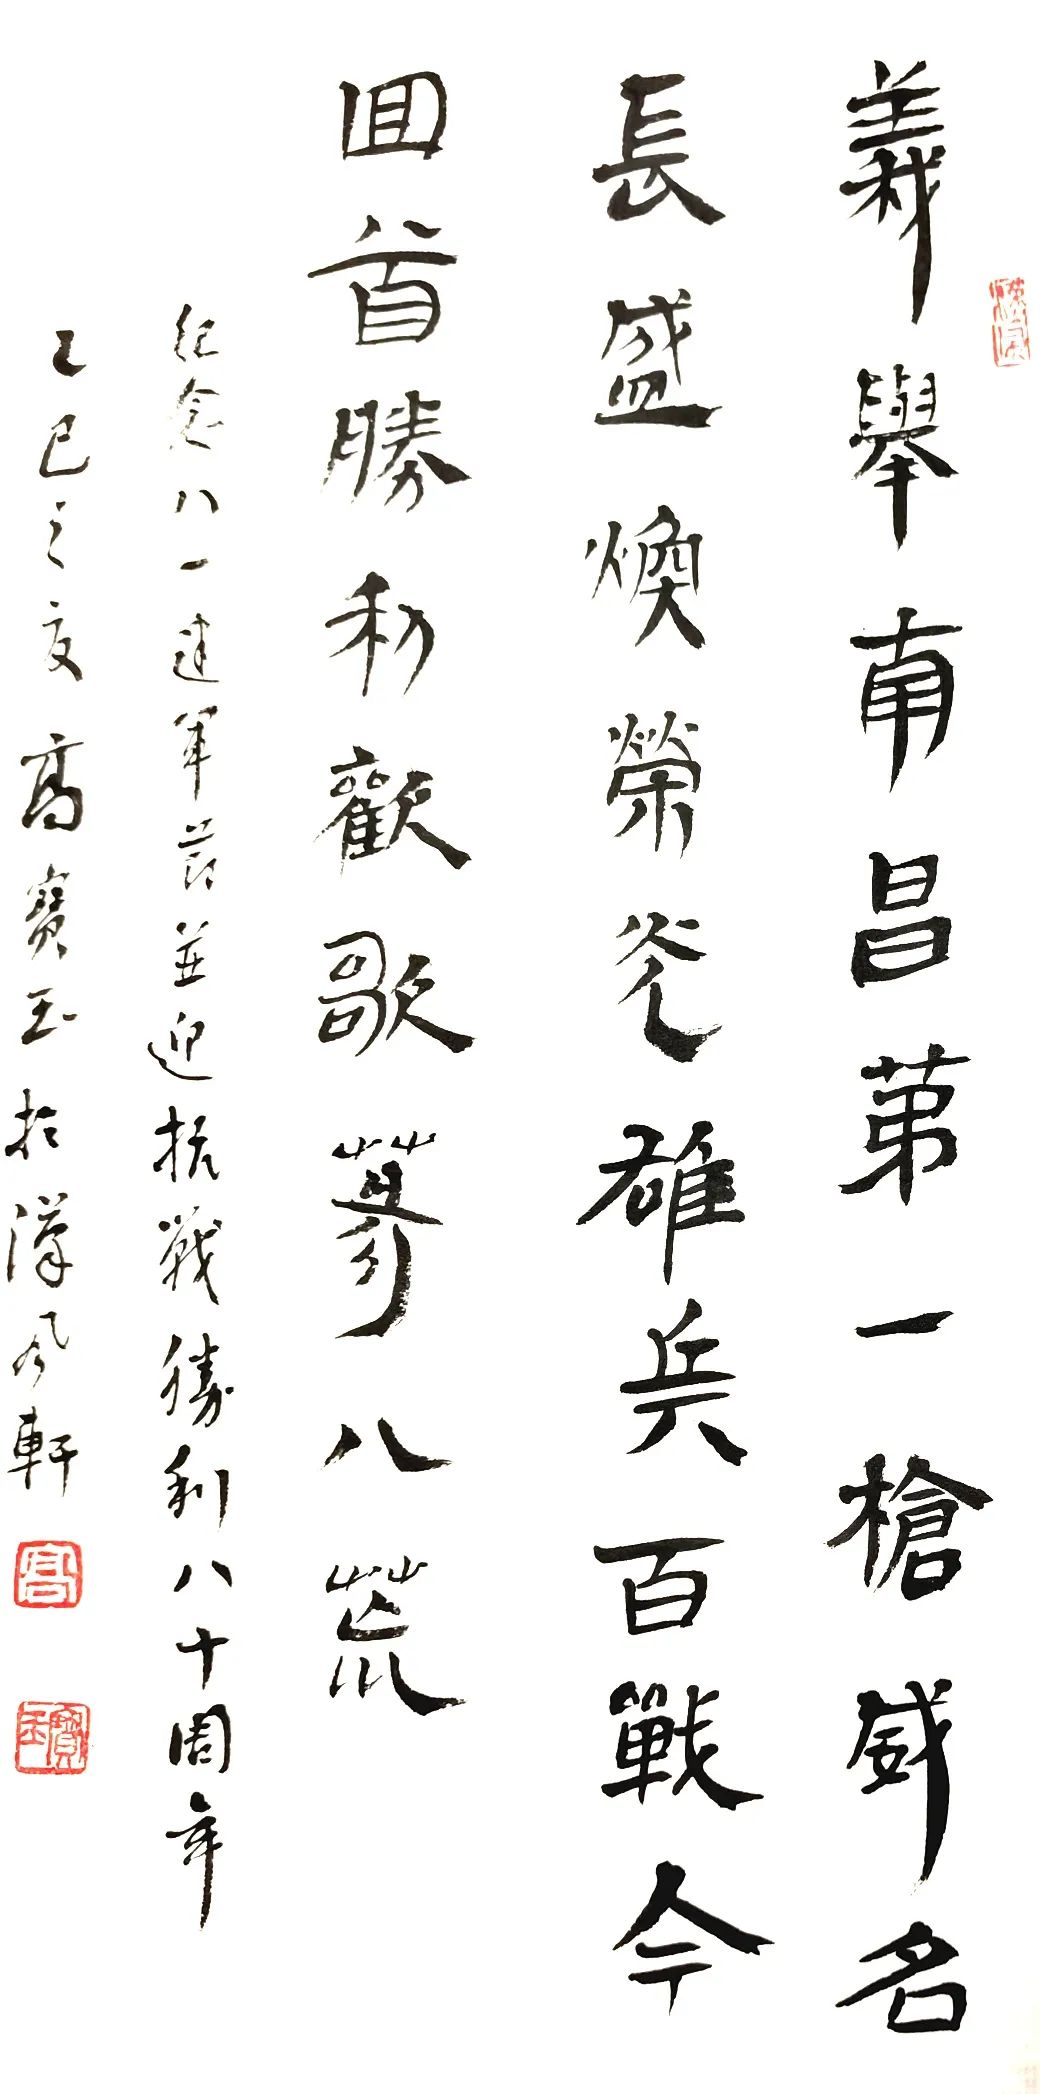 義舉南昌第一槍威名
長盛煥榮光雄兵百戰今
回首勝利歡歌蕩八荒
纪念八一建軍節並迎抗戰勝利八十周年
乙巳之夏高寶玉於漢風軒
高
寶玉